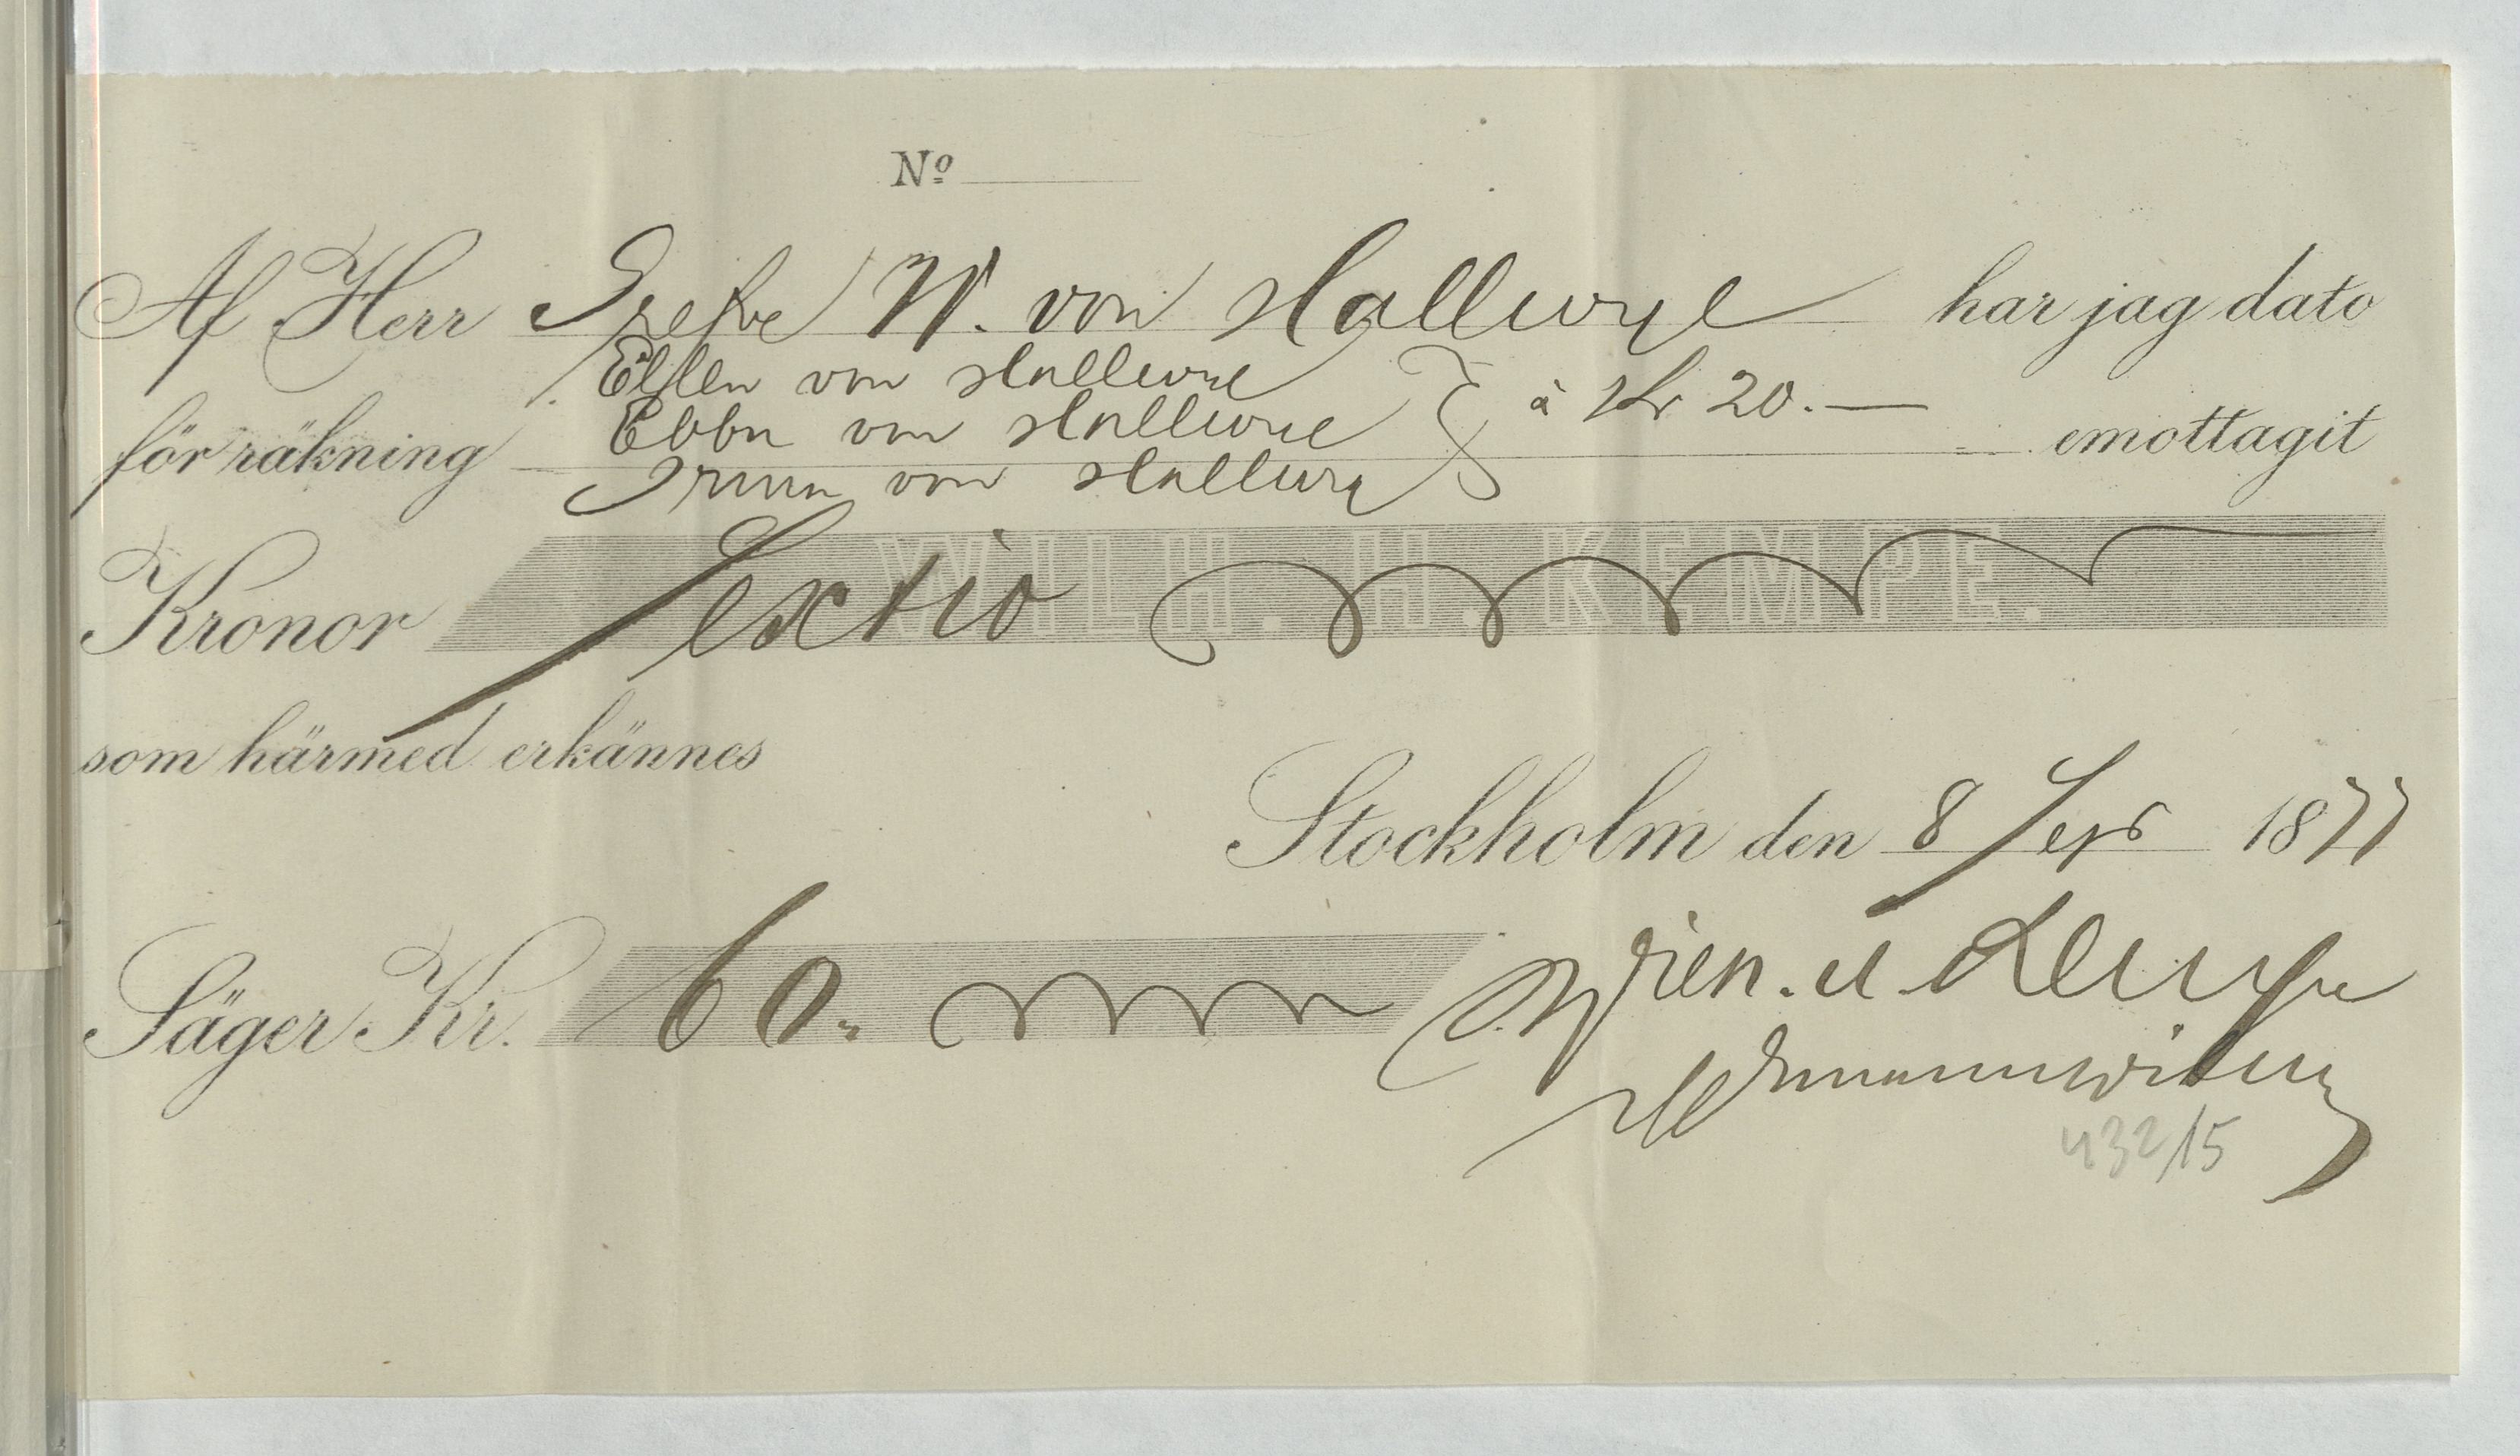 Nº
Af Herr Grefve W. von Hallwyl har jag dato
Ellen von Hallwyl
Ebba von Hallwyl à Kr 20.—
för räkning Irma von Hallwyl emottagit
Kronor Sextio WILH. H. KEMPE.
som härmed erkännes
Stockholm den 8 Sept 1877
Säger Kr. 60. Kempe
432/15